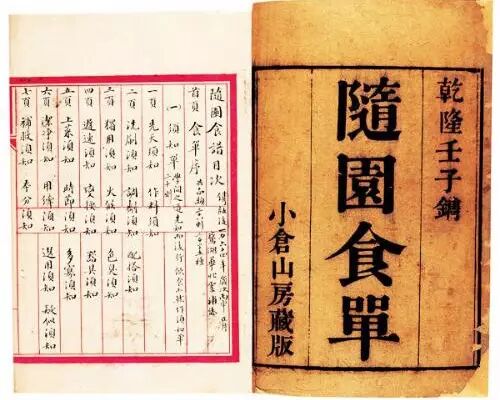 乾隆壬子鐫
隨園食單
小倉山房藏版
隨園食譜目次
首頁 食單序
(一) 須知單 學問之道先知而後行飲食亦然作須知單
一頁 先天須知 作料須知
二頁 洗刷須知 調劑須知 配搭須知
三頁 獨用須知 火候須知 色臭須知
四頁 遲速須知 變換須知 器具須知
五頁 上菜須知 時節須知 多寡須知
六頁 潔淨須知 用纖須知 選用須知 疑似須知
七頁 補救須知 本分須知